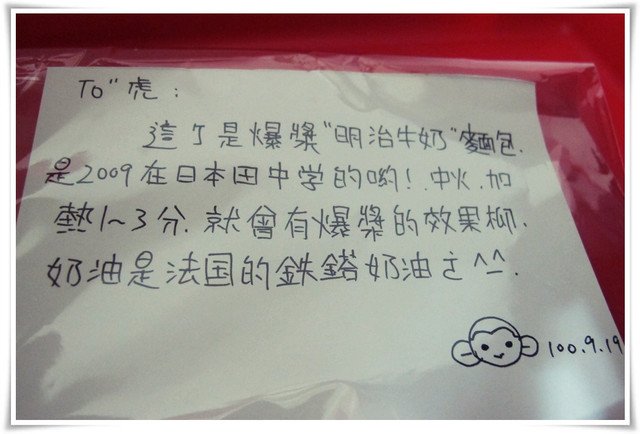 To"虎:
這了是爆漿"明治牛奶"麵包.
是2009在日本田中学的喲!.中火.加
熱1~3分.就會有爆漿的效果柳.
奶油是法国的鉄鎝奶油ㄛ^^.
100.9.19